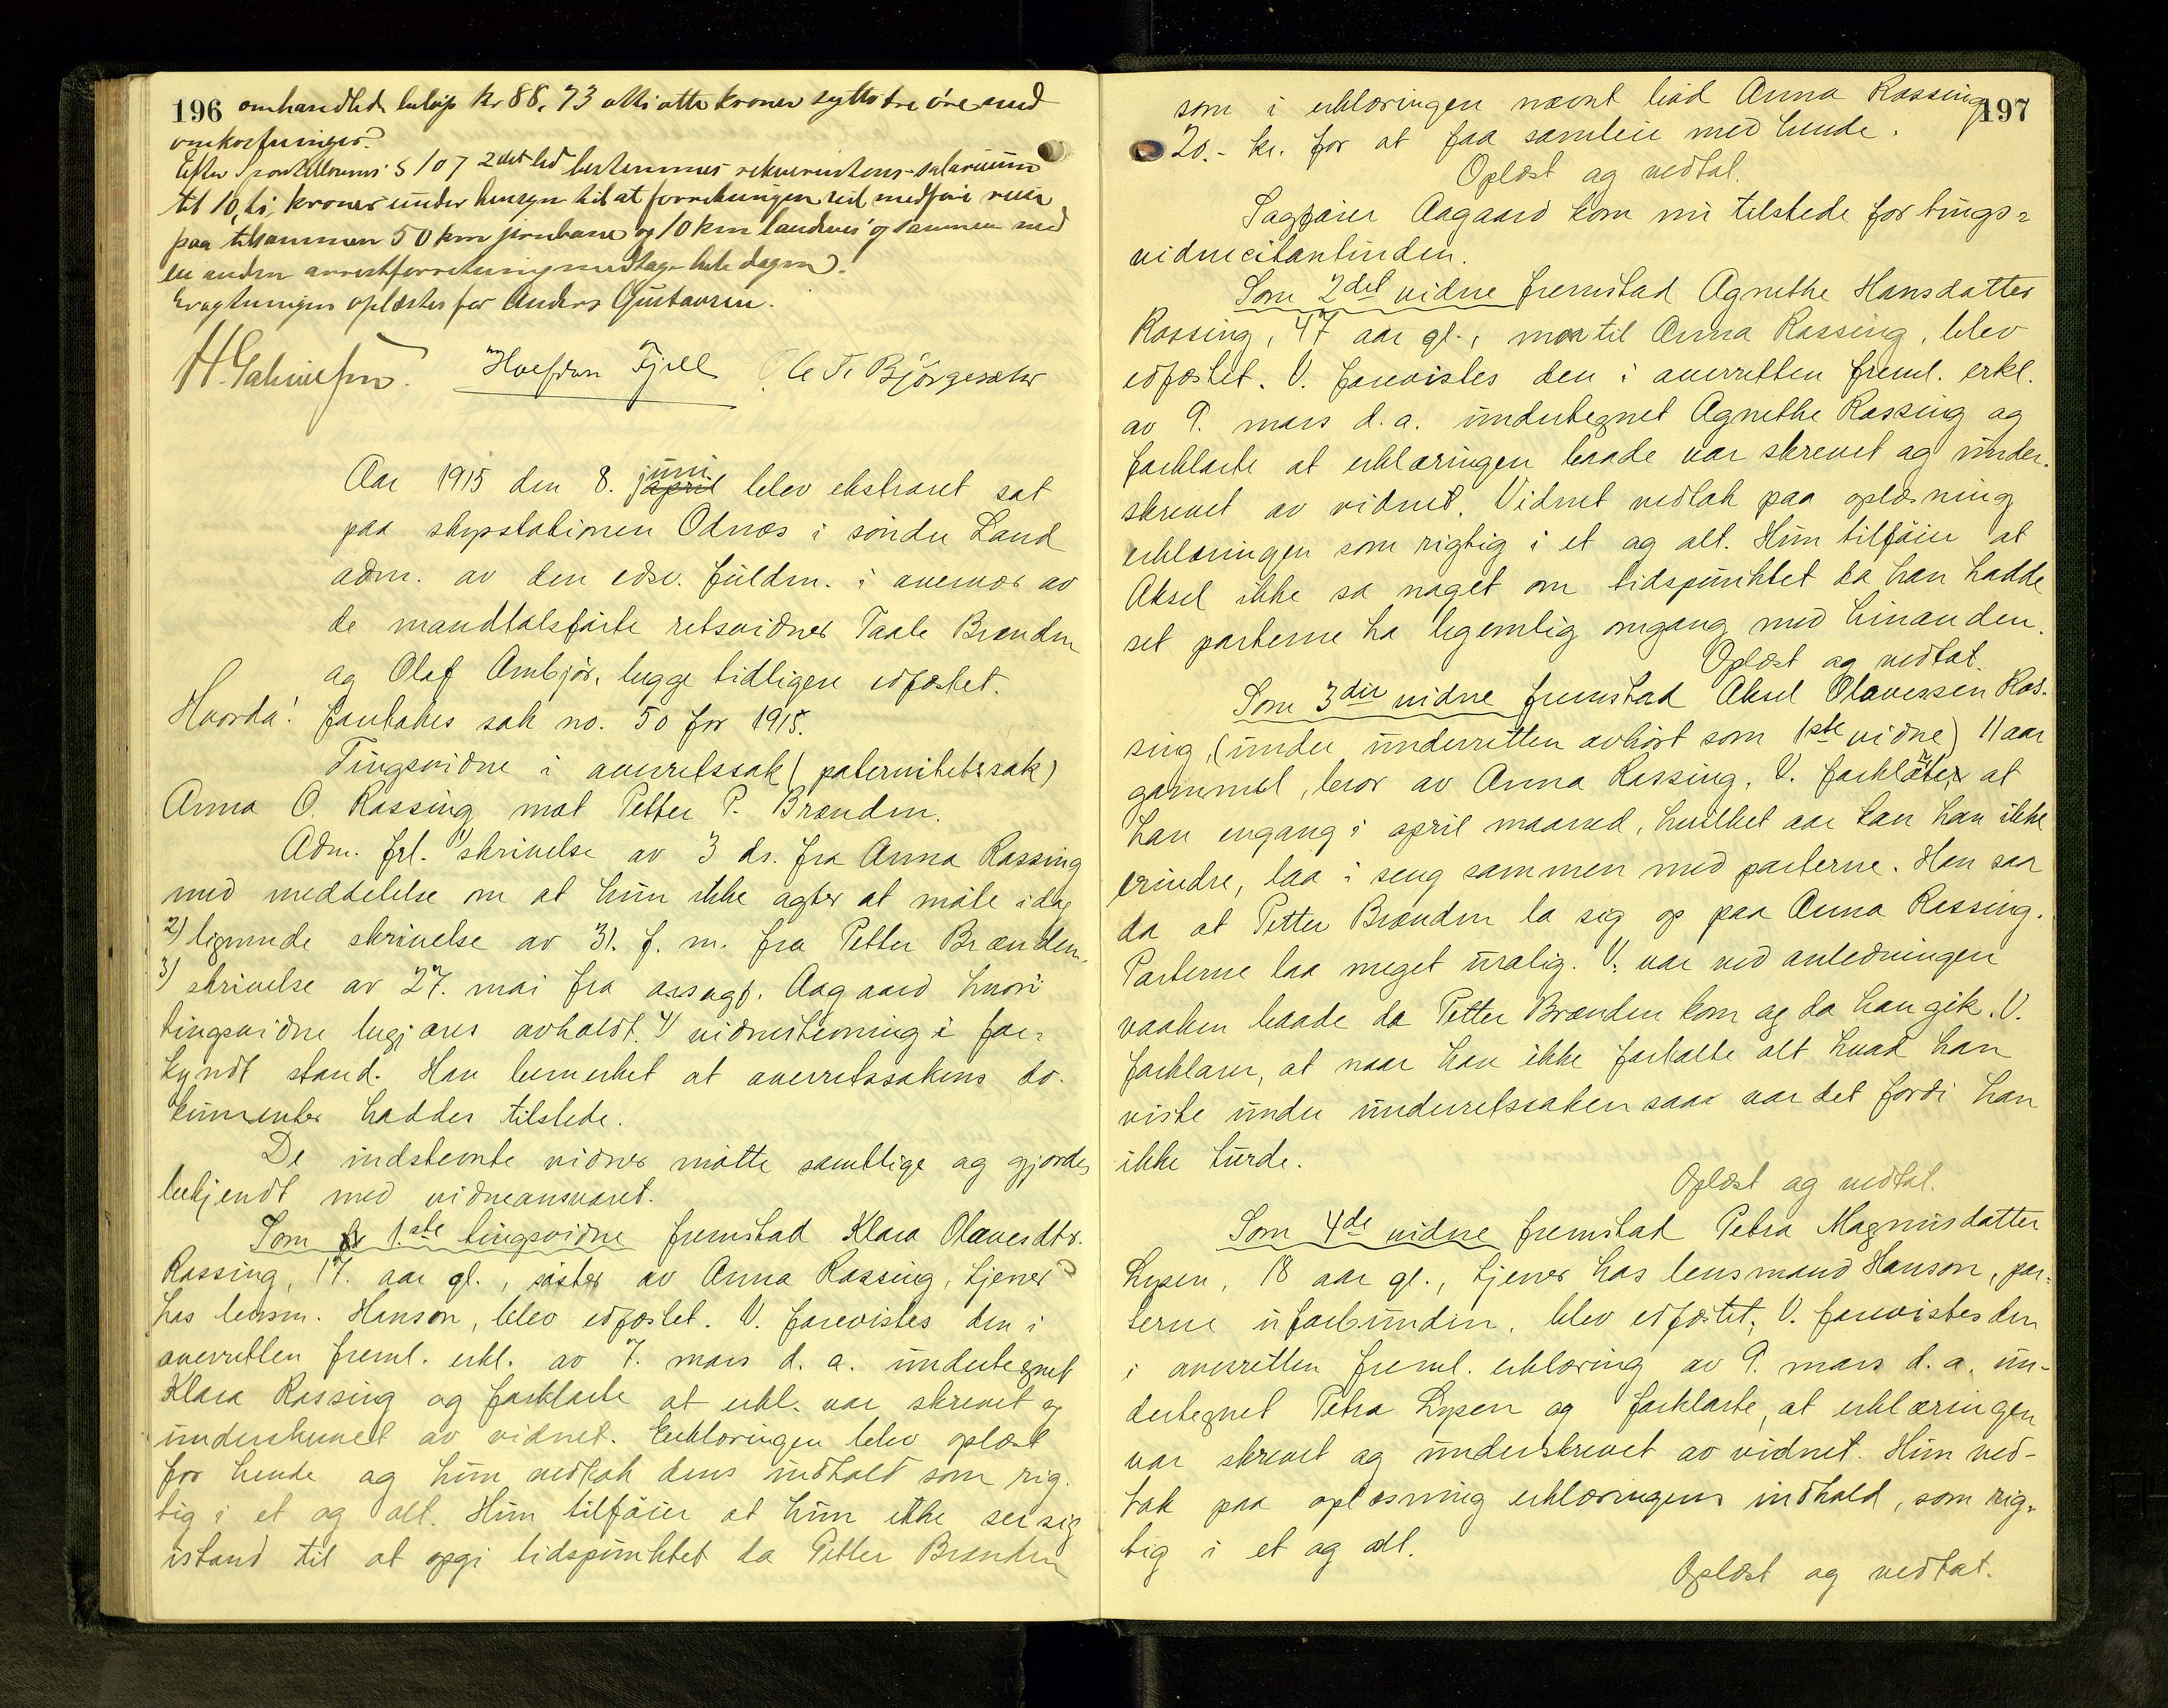 196 omhandlede beløp kr 88,73 otti otte kroner sytti tre øre med
omkostninger.
Efter Sportellovens § 107 2det led bestemmes rekvirentens salarium
til 10, ti, kroner under hensyn til at forretningen vil medføre reise
paa tilsammen 50 km jernbane og 10 km landevei og sammen med
en anden arrestforretning medtage hele dagen.
Eragtningen oplæstes for Anders Gustavsen.
Halvdan Fjell Ole T. Bjørgesæter
Aar 1915 den 8. april juni blev ekstraret sat
paa skysstationen Odnæs i søndre Land
adm. av den edsv. fuldm. i overvær av
de mandtalsførte retsvidner Taale Brænden
og Olaf Ambjør, begge tidligere edfæstet.
Hvorda! foretokes sak no. 50 for 1915.
Tingsvidne i overretssak (paternitetssak)
Anna O. Røssing mot Petter P. Brænden.
Adm. frl. 1) skrivelse av 3 ds. fra Anna Røssing
med meddelelse om at hun ikke agter at møte idag
2) lignende skrivelse av 31. f. m. fra Petter Brænden,
3) skrivelse av 27. mai fra o.r.sagf. Aagaard hvori
tingsvidne begjæres avholdt. 4) vidnestevning i for-
kyndt stand. Han bemerket at overretssakens do-
kumenter haddes tilstede.
De indstevnte vidner møtte samtlige og gjordes
bekjendt med vidneansvaret.
Som 1.ste tingsvidne fremstod Klara Olavesdtr.
Røssing, 17. aar gl., søster av Anna Røssing, tjener
hos lensm. Hanson, blev edfæstet. V. forevistes den i
overretten freml. erkl. av 7. mars d. a. undertegnet
Klara Røssing og forklarte at erkl. var skrevet og
underskrevet av vidnet. Erklæringen blev oplæst
for hende og hun vedtok dens indhold som rig-
tig i et og alt. Hun tilføier at hun ikke ser sig
istand til at opgi tidspunktet da Petter Brænden
197
som i erklæringen nævnt bød Anna Røssing
20.- kr. for at faa samleie med hende.
Oplæst og vedtat.
Sagfører Aagaard kom nu tilstede for tings-
vidnecitantinden.
Som 2det vidne fremstod Agnethe Hansdatter
Røssing, 47 aar gl., mor til Anna Røssing, blev
edfæstet. V. forevistes den i overretten freml. erkl.
av 9. mars d. a. undertegnet Agnethe Røssing og
forklarte at erklæringen baade var skrevet og under-
skrevet av vidnet. Vidnet vedtok paa oplæsning
erklæringen som rigtig i et og alt. Hun tilføier at
Aksel ikke sa noget om tidspunktet da han hadde
set parterne ha legemlig omgang med hinanden.
Oplæst og vedtat.
Som 3die vidne fremstod Aksel Olavessen Røs-
sing, (under underretten avhørt som 1ste vidne) 11 aar
gammel, bror av Anna Røssing. V. forklarte, at
han engang i april maaned, hvilket aar kan han ikke
erindre, laa i seng sammen med parterne. Han saa
da at Petter Brænden la sig op paa Anna Røssing.
Parterne laa meget urolig. V. var ved anledningen
vaaken baade da Petter Brænden kom og da han gik. V.
forklarer, at naar han ikke fortalte alt hvad han
viste under underretssaken saa var det fordi han
ikke turde.
Oplæst og vedtat.
Som 4de vidne fremstod Petra Magnusdatter
Lysen, 18 aar gl., tjener hos lensmand Hanson, par-
terne uforbunden, blev edfæstet, V. forevistes den
i overretten freml. erklæring av 9. mars d. a. un-
dertegnet Petra Lysen og forklarte, at erklæringen
var skrevet og underskrevet av vidnet. Hun ved-
tok paa oplæsning erklæringens indhold, som rig-
tig i et og alt.
Oplæst og vedtat.